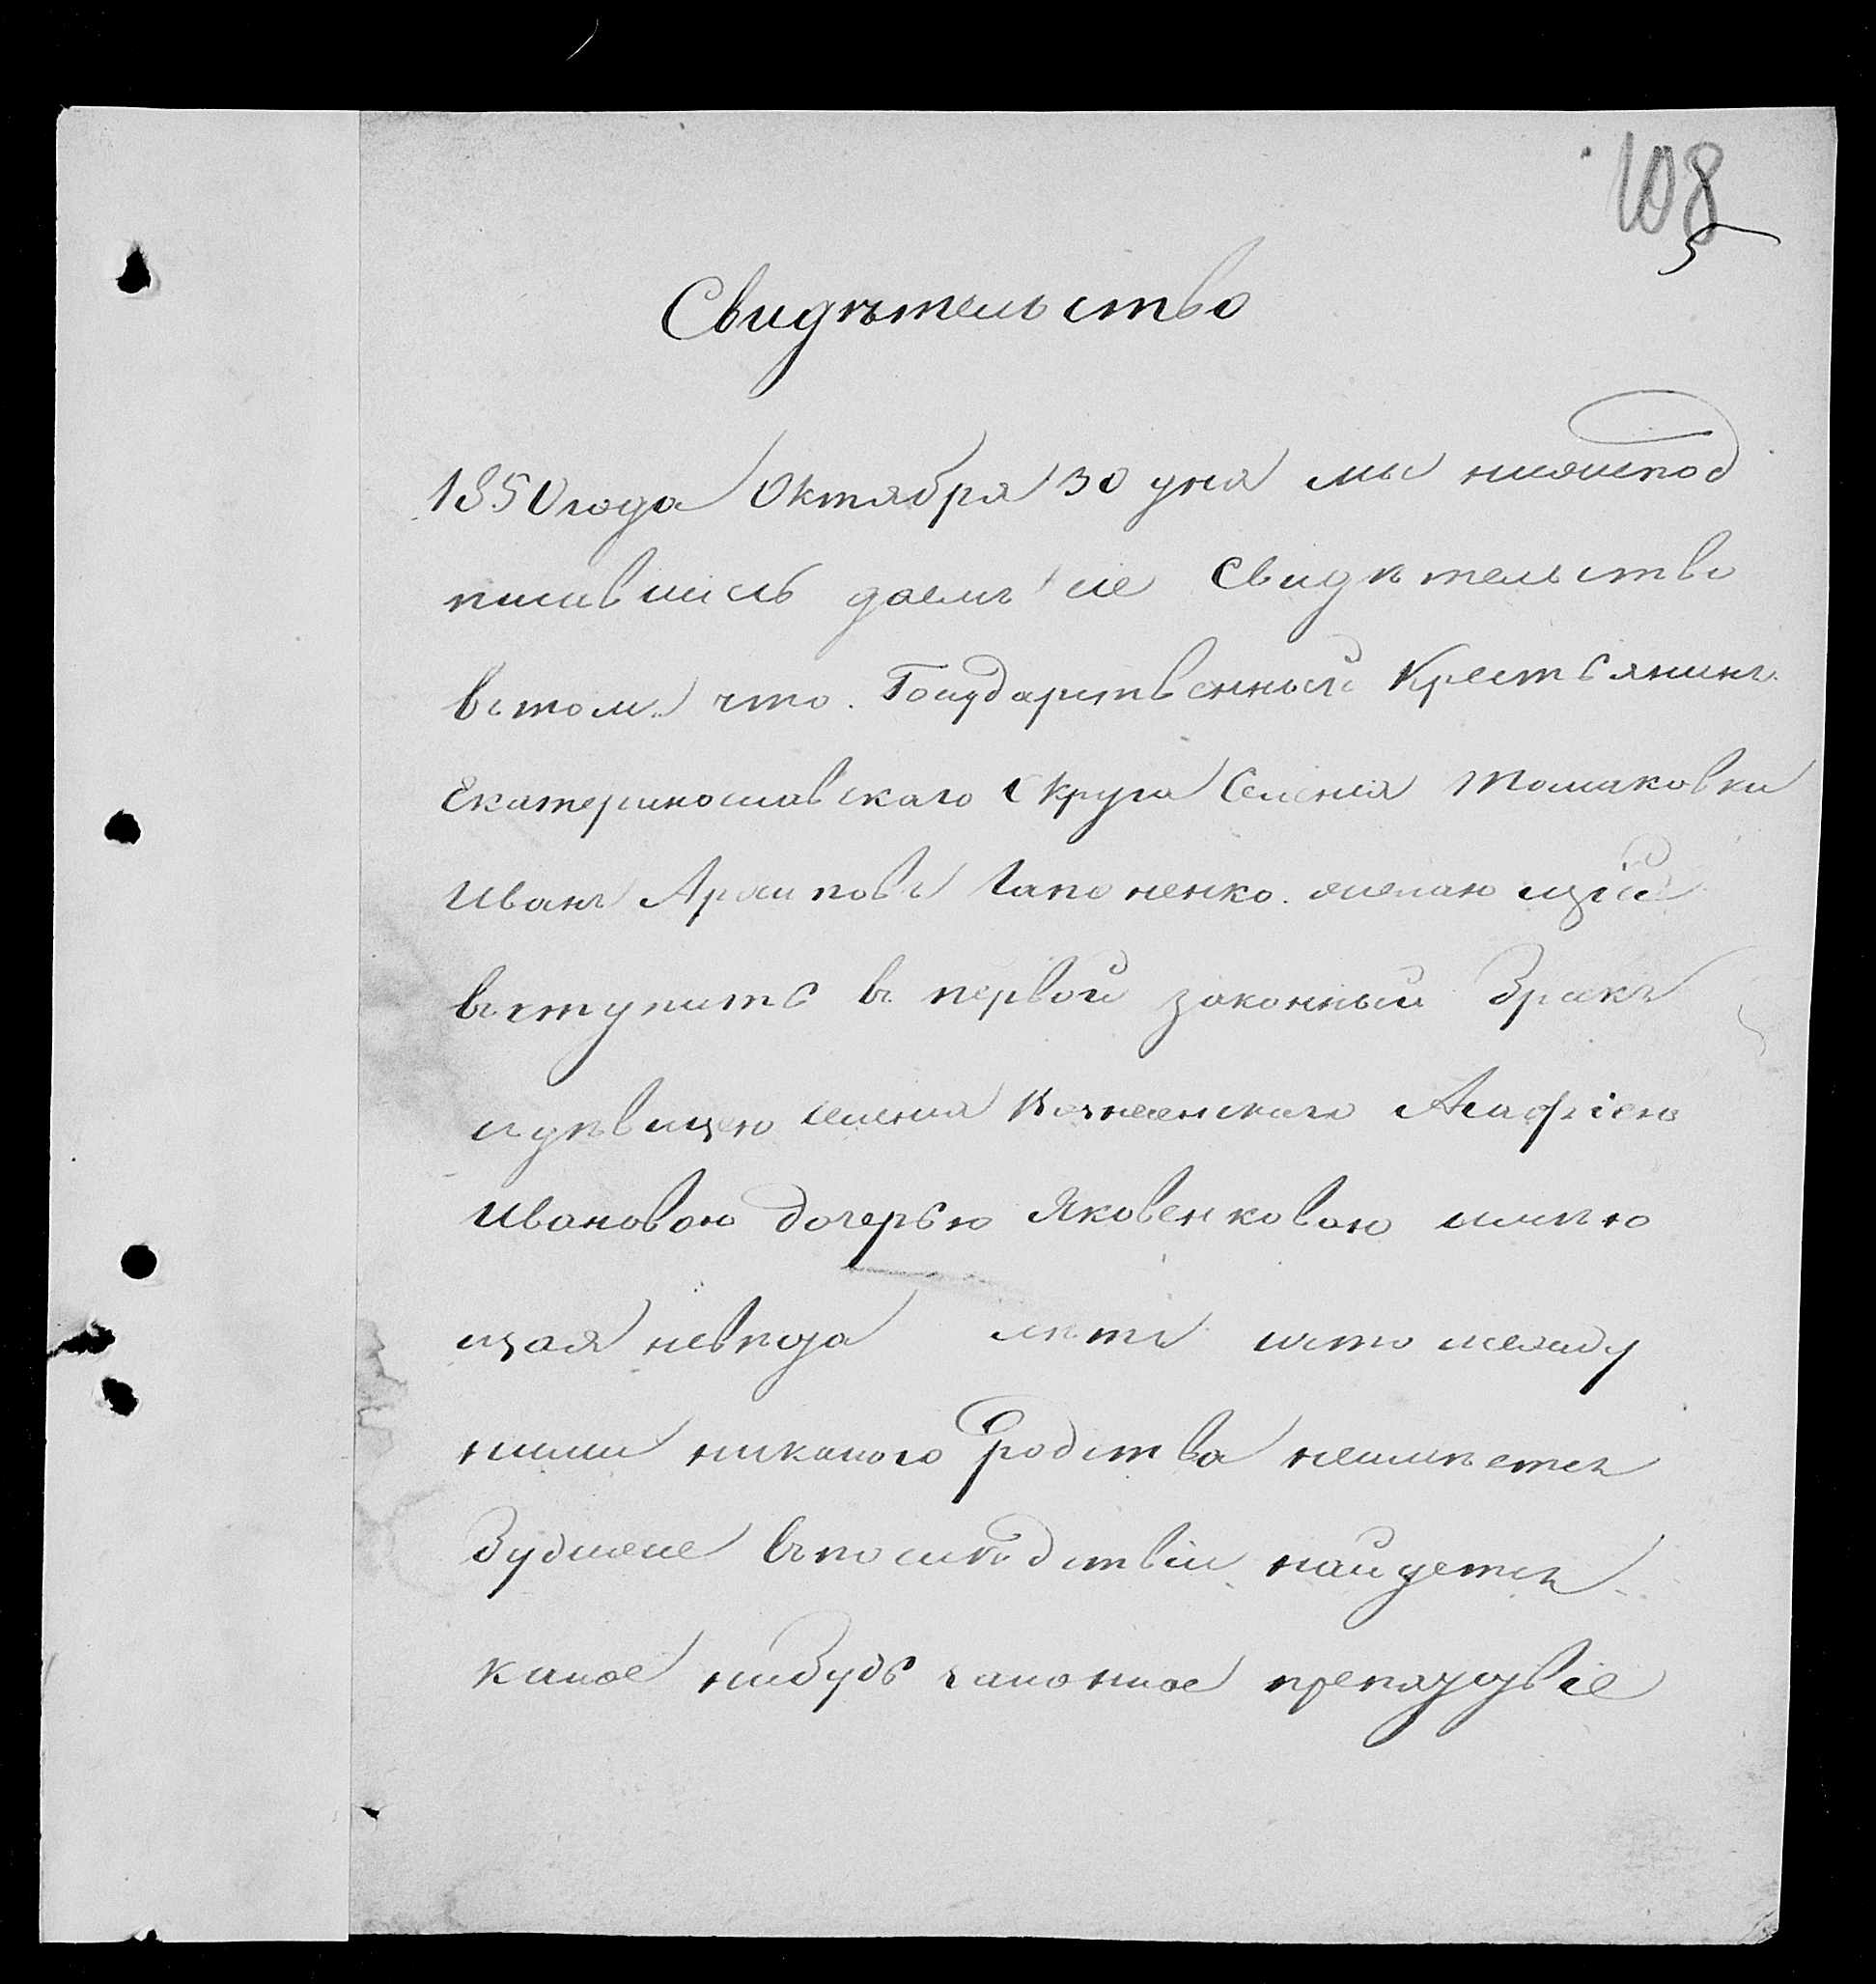 108
5
Свидѣтельство
1850 года Октября 30 дня мы нижепод
писавшись даемъ сіе Свидѣтельство
вътомъ что Государственный Крестьянинъ
Екатеринославскаго Округа Селенія Томаковки
Иванъ Архиповъ Гапоненко желающій
въступить въ первой законный Бракъ
сдѣвицею селенія Вознесенскаго Агафіею
Ивановою дочерью Яковенковою имѣю
щая лѣтъ ичто между
ними никакого родства неимѣетсъ
Будиже въпослѣдствіи найдетсъ
какое нибудь законное препятствіе